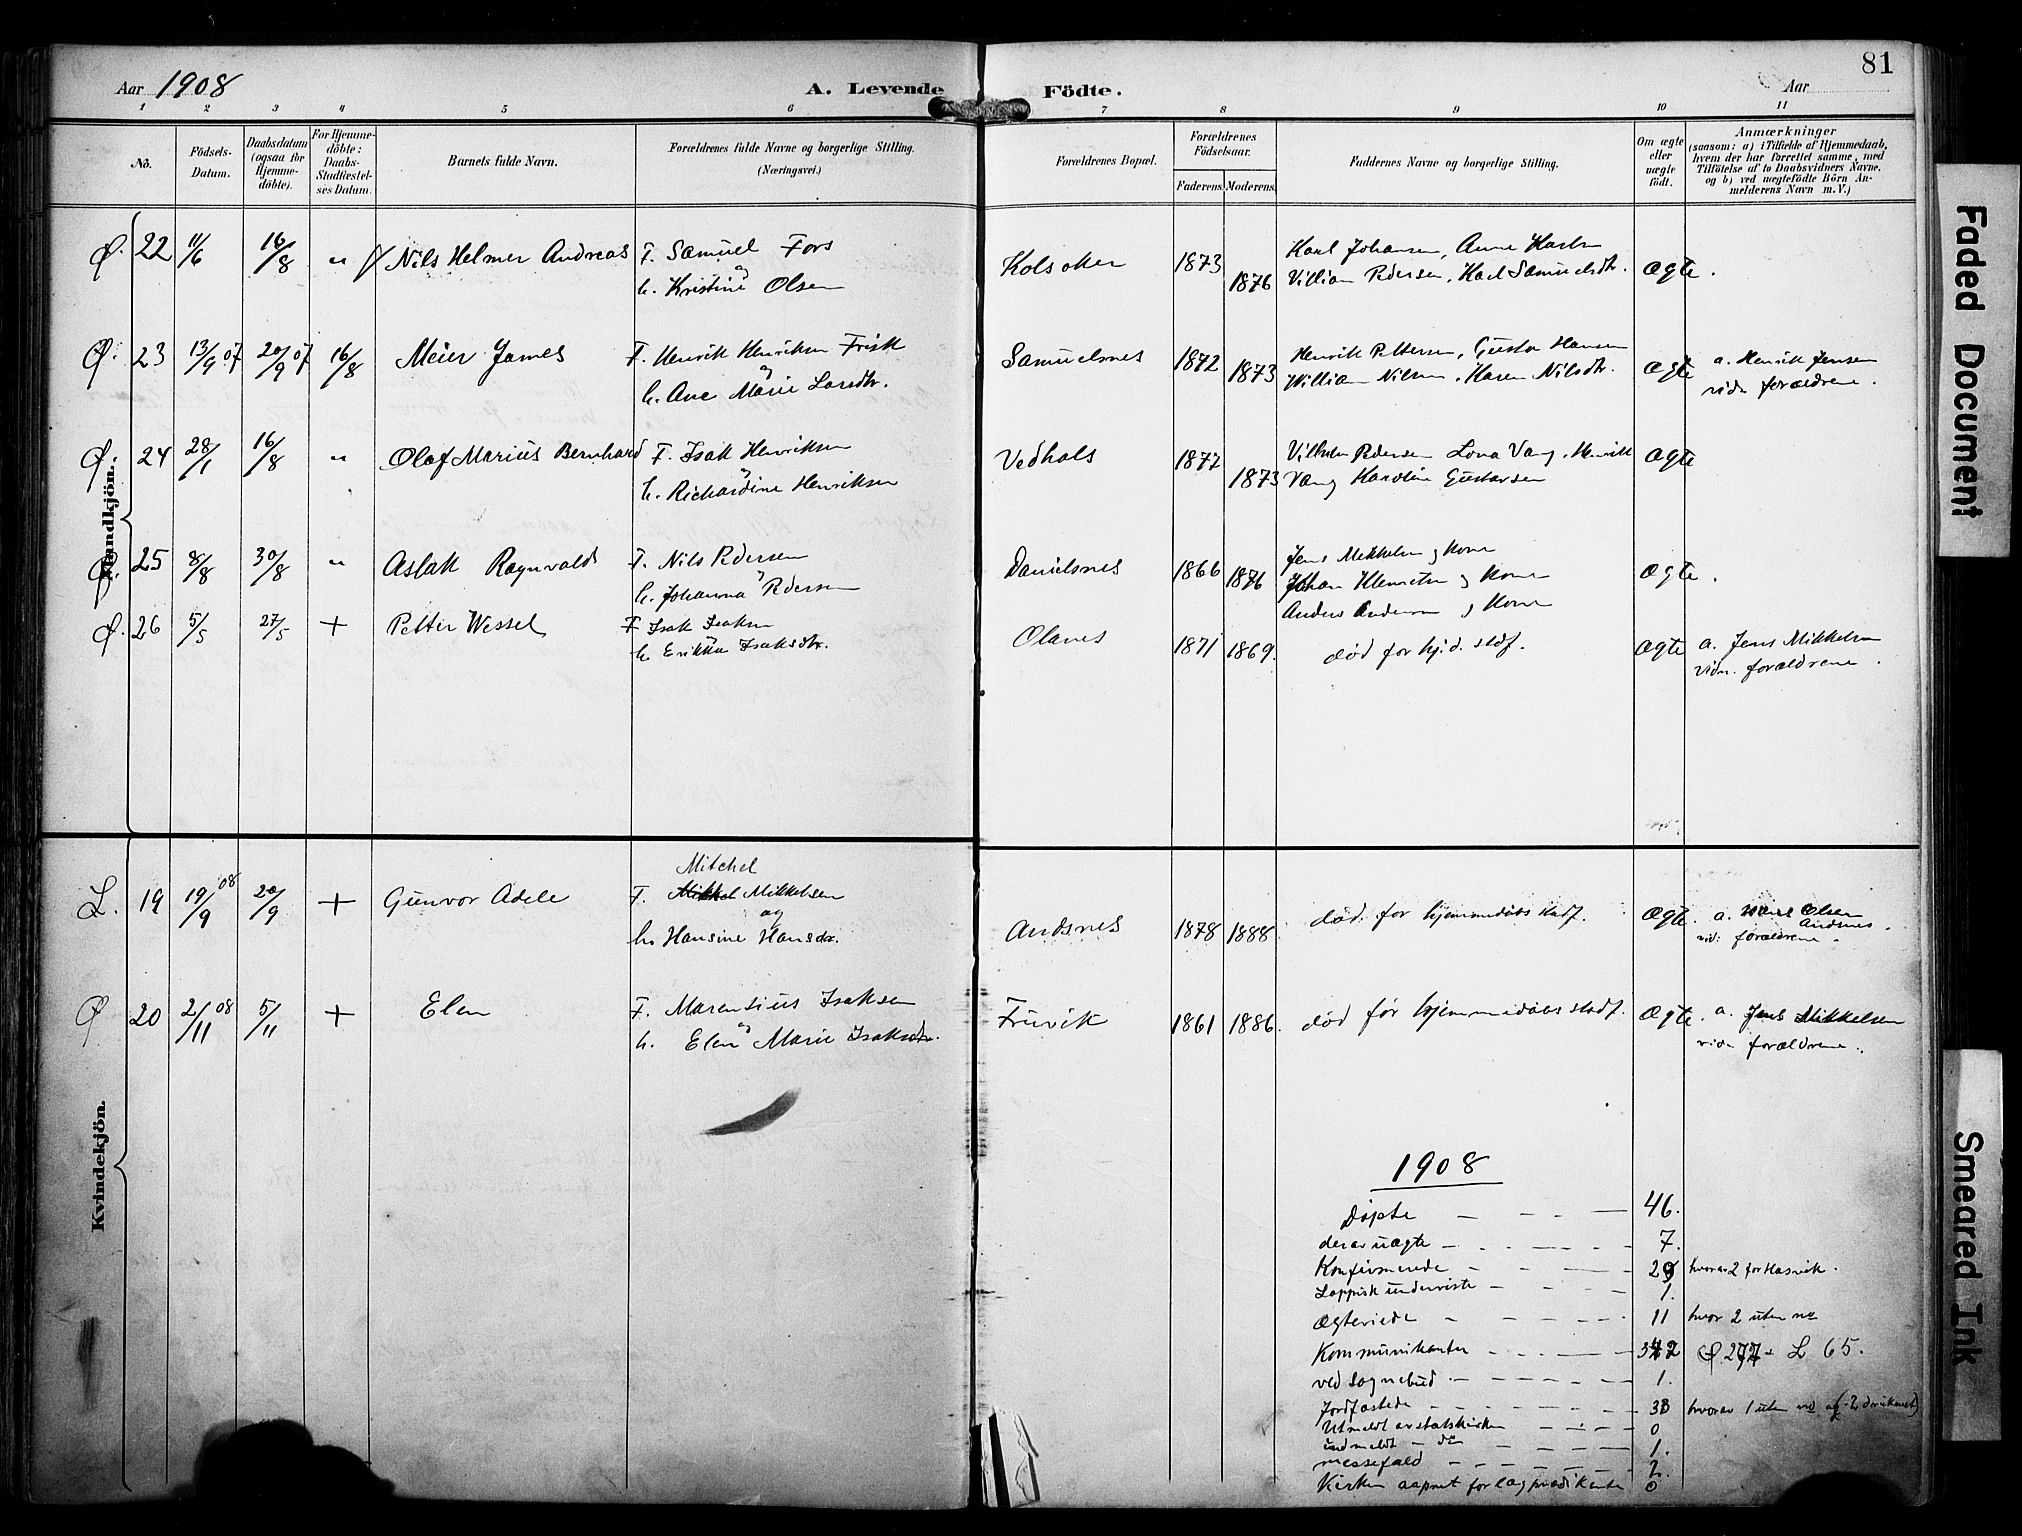 Aar 1908
A. Levende
Födte.
Aar
81
1 2 3 4 5 6 7 8 9 10 11
No.
Födsels-
Datum.
Daabsdatum
(ogsaa for
Hjemme-
döbte).
For Hjemme-
döbte:
Daabs-
Stadfæstel-
ses Datum.
Barnets fulde Navn.
Forældrenes fulde Navne og borgerlige Stilling.
(Næringsvei.)
Forældrenes Bopæl.
Forældrenes
Födselsaar.
Faderens. Moderens.
Faddernes Navne og borgerlige Stilling.
Om ægte
eller
uægte
födt.
Anmærkninger
(saasom: a) i Tilfælde af Hjemmedaab,
hvem der har forrettet samme, med
Tilföielse af to Daabsvidners Navne,
og b) ved uægtefödte Börn An-
melderens Navn m. V.)
Mandkjön.
Ø. 22 11/6 16/8 " Nils Helmer Andreas F. Samuel Fors
og
h. Kristine Olsen
Kolsoker 1873 1876 Karl Johansen, Anne Karln
Villiam Pedersen, Karl Samuelsdtr. Ægte.
Ø. 23 13/9 07 20/9 07 16/8 Meier James F. Henrik Henriksen Frisk
og
h. Ane Marie Larsdtr.
Samuelsnes 1872 1873 Henrik Pettersen, Gusta Hansen
William Nilsen, Karen Nilsdtr. Ægte a. Henrik Jensen
vidn forældrene.
Ø. 24 28/1 16/8 " Olaf Marius Bernhard F. Isak Henriksen
og
h. Richardine Henriksen
Vedhals 1877 1873 Vilhelm Pedersen Lona Vang, Henrik
Vang Karoline Gustavsen Ægte
Ø. 25 8/8 30/8 " Aslak Ragnvald F. Nils Pedersen
og
h. Johanna Pedersen
Danielsnes 1866 1876 Jens Mikkelsen og Kone
Johan Klemetsen og Kone
Anders Andersen og Kone Ægte.
Ø. 26 5/5 27/5 + Petter Wessel F. Isak Isaksen
og
h. Erikka Isaksdtr.
Olanes 1871 1869. død før hj.d. stdf. Ægte a. Jens Mikkelsen
vidn. forældrene.
Kvindekjön.
L. 19 19/9 08 20/9 + Gunvor Adele Mitchel
F. Mikkel Mikkelsen
og
h. Hansine Hansdtr.
Andsnes 1878 1888. død før hjemmedåbs stadf. Ægte. a. Hans Olsen
Andsnes.
vid: forældrene.
Ø 20 2/11 08 5/11 + Elen F. Marensius Isaksen
og
h. Elen Marie Isaksdtr.
Fruvik 1861 1886. død før hjemmedåbs stadf. Ægte. a. Jens Mikkelsen
vidn forældrene.
1908
Døpte 46.
derav uægte 7.
Konfirmerede 29 hvorav 2 for Hasvik.
Lappisk underviste 1.
Ægteviede 11 hvor 2 uten no
Kommunikanter 342 Ø. 277 + L 65.
ved Sognebud 1.
Jordfæstede 33 hvorav 1 uten no og 2 druknet)
Utmeldt av statskirken 0
indmeldt - do 1.
messefald 2.
Kirken aapnet for lægprædikanter 0
Faded Document
Smeared Ink